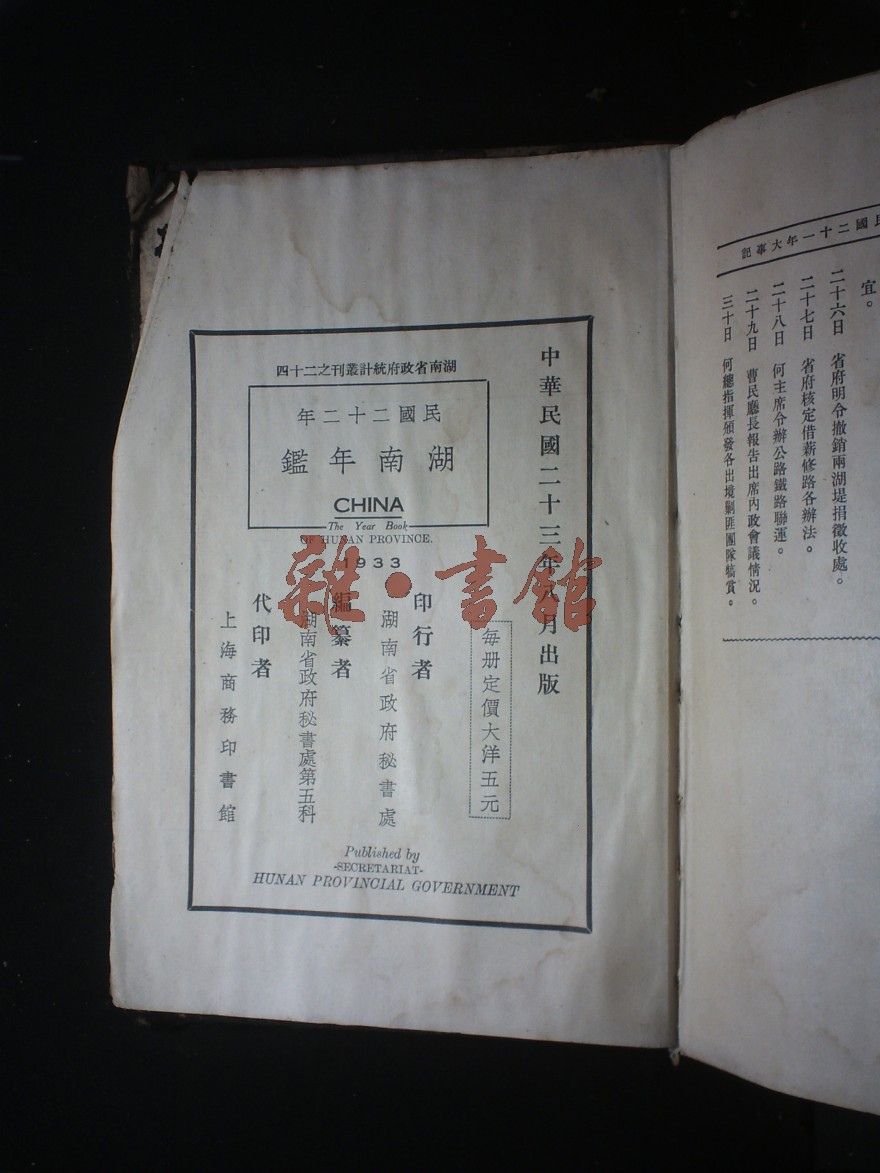 湖南省政府統計叢刊之二十四
民國二十二年
湖南年鑑
CHINA
The Year Book
OF HUNAN PROVINCE.
1933
中華民國二十三年八月出版
每册定價大洋五元
印行者
湖南省政府秘書處
編纂者
湖南省政府秘書處第五科
代印者
上海商務印書館
Published by
-SECRETARIAT-
HUNAN PROVINCIAL GOVERNMENT
雜·書館
國二十一年大事記
宜。
二十六日 省府明令撤銷兩湖堤捐徵收處。
二十七日 省府核定借薪修路各辦法。
二十八日 何主席令辦公路鐵路聯運。
二十九日 曹民廳長報告出席內政會議情況。
三十日 何總指揮頒發各出境剿匪團隊犒賞。